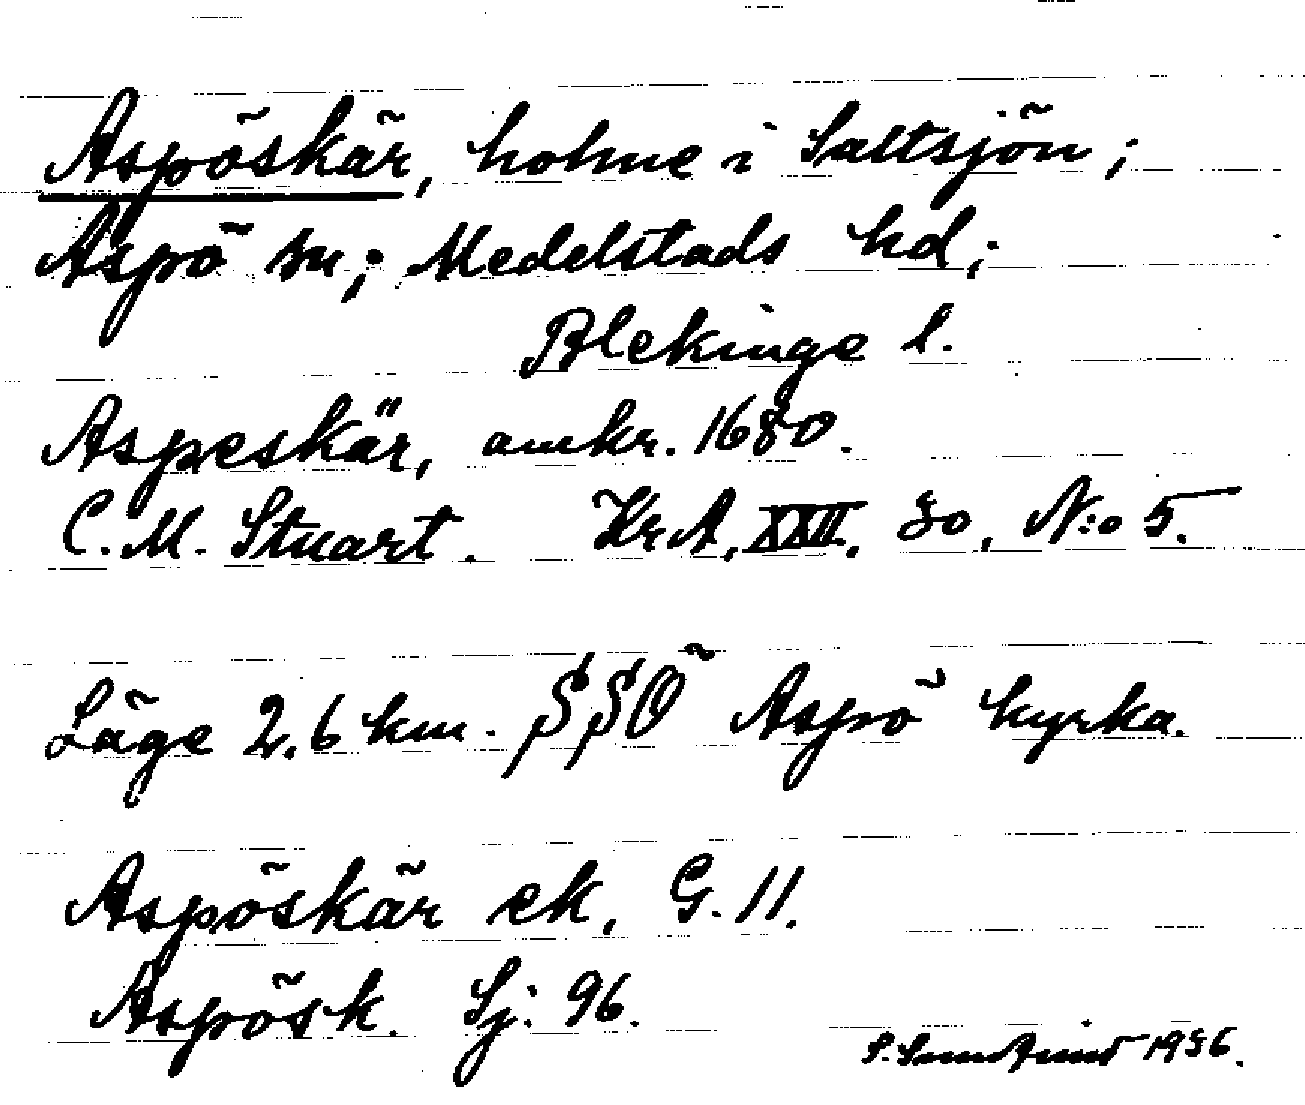 Aspöskär, holme i Saltsjön;
Aspö sn; Medelstads hd;
Blekinge l.
Aspeskär, omkr. 1680.
C. M. Stuart. KrA, XXII, 80, N:o 5.
Läge 2.6 km. SSO Aspö kyrka.
Aspöskär ek, G. 11.
Aspösk. Sj: 96.
S. 1936.